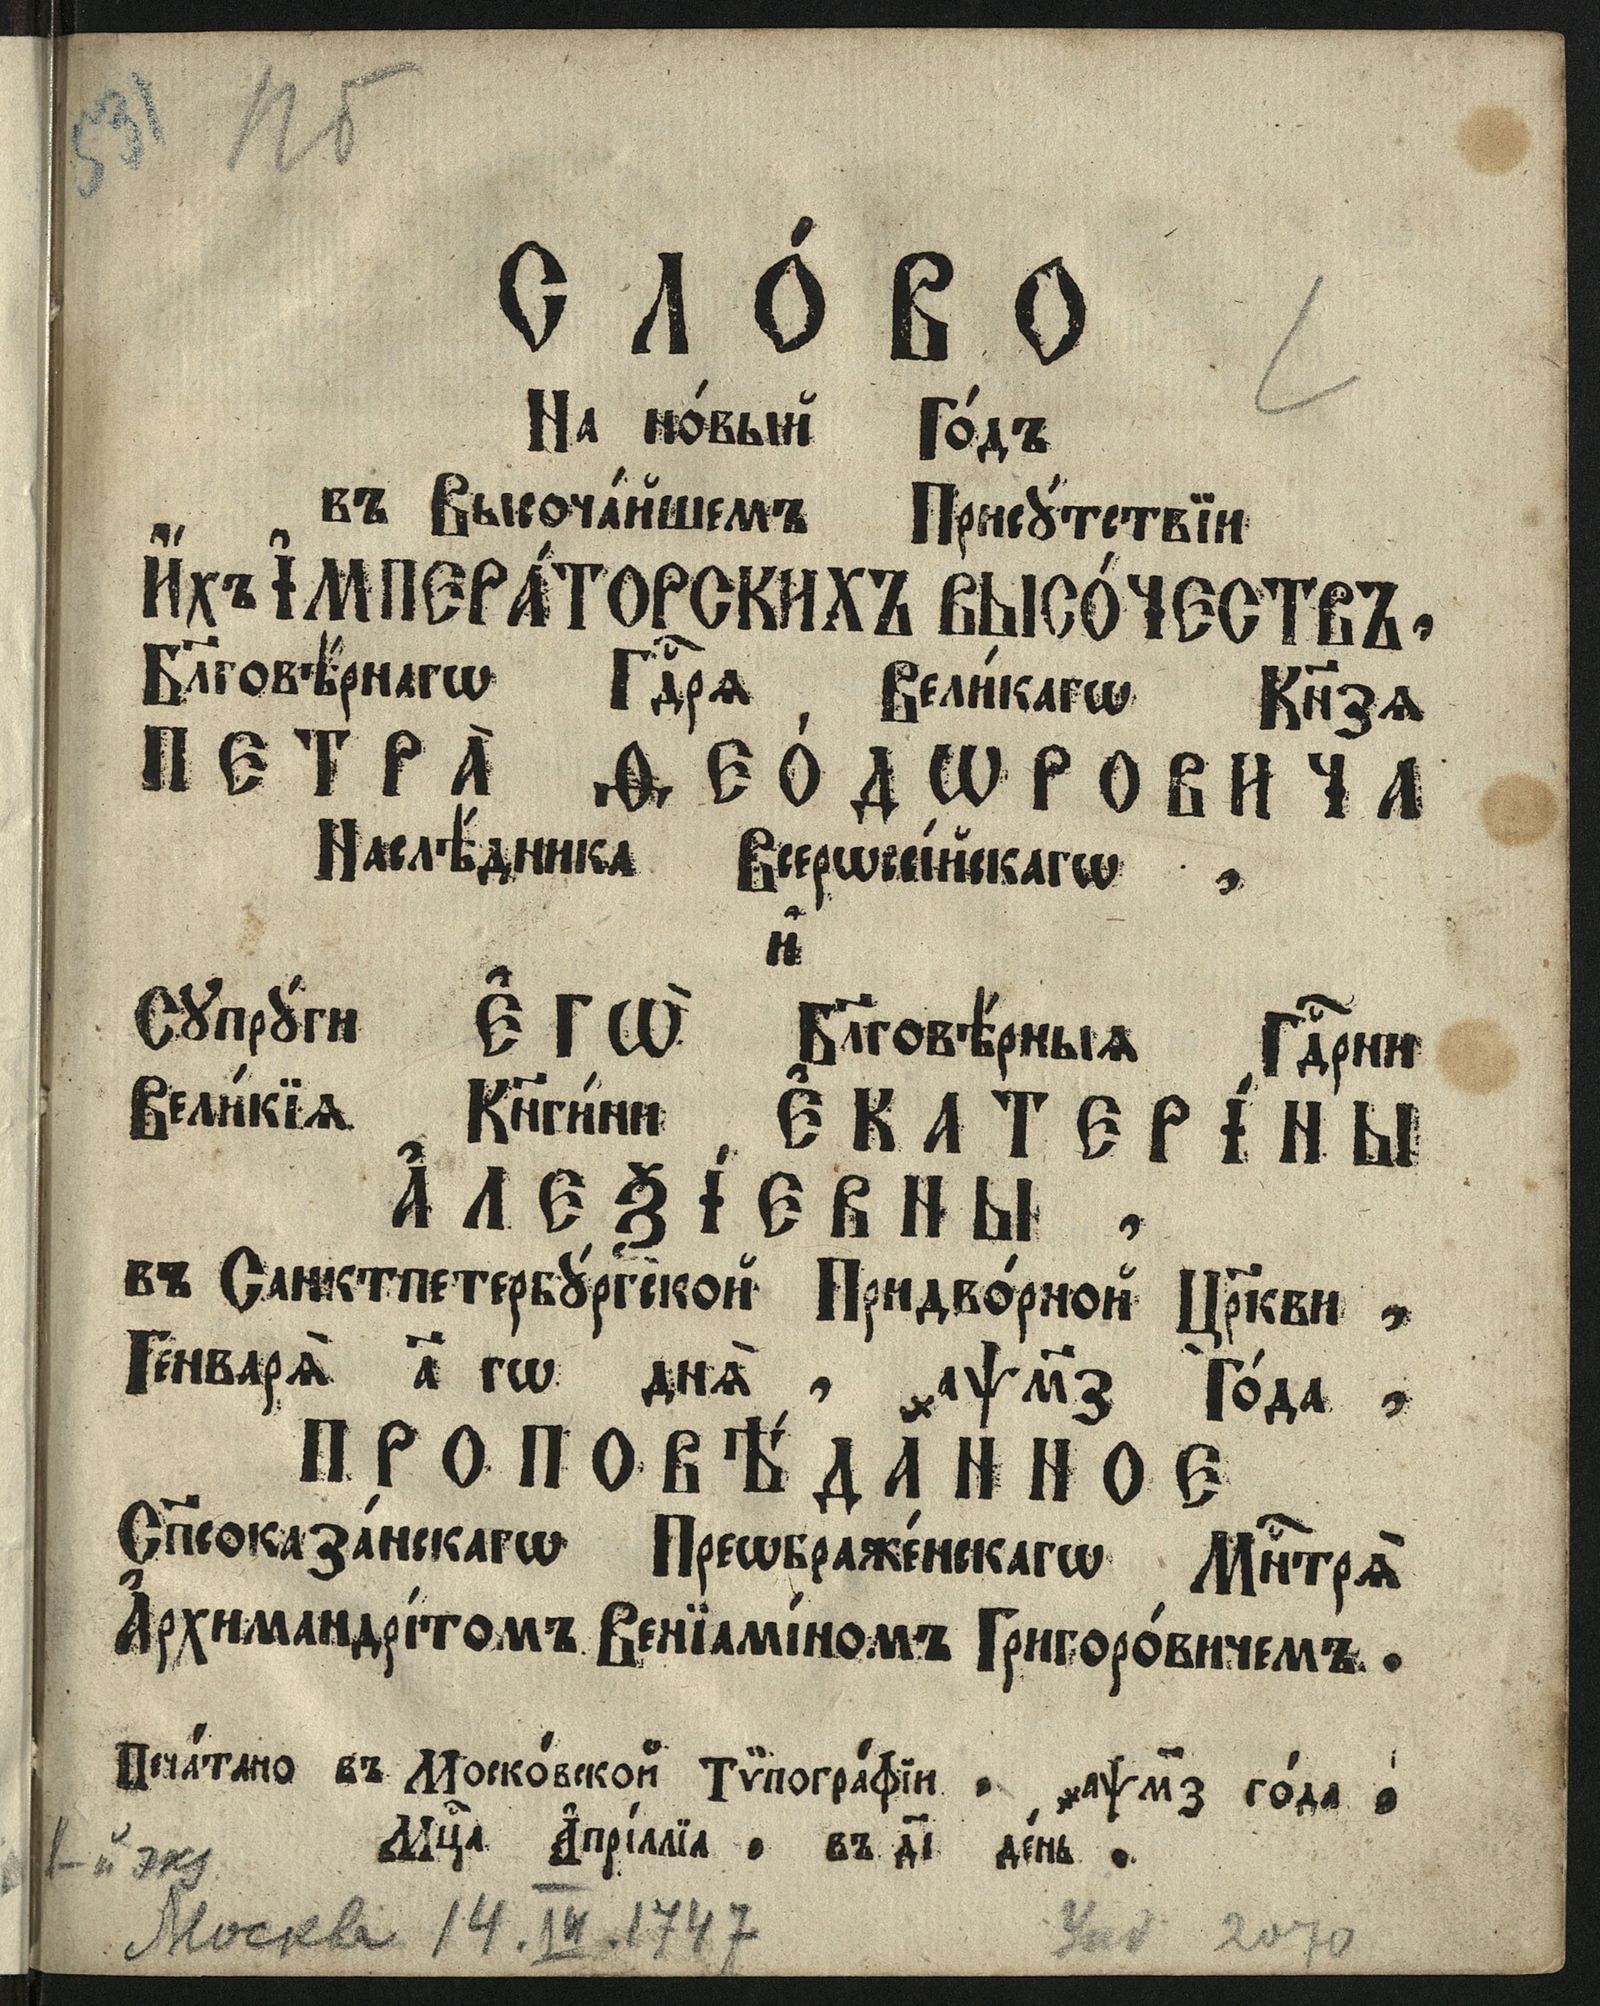 531 Пб
СЛО́ВО
На но́вый Го́дъ
въ Высоча́йшемъ Прису́тствїи
И҆́хъ І҆МПЕРА́ТОРСКИХЪ ВЫСО́ЧЕСТВЪ,
Бл҃говѣ́рнагѡ Гдⷭ҇рѧ Вели́кагѡ Кн҃зѧ
ПЕТРА̀ Ѳ҆ЕО́ДѠРОВИЧА
Наслѣ́дника Всерѡссі́йскагѡ ,
и҆
Сꙋпрꙋ́ги Є҆ГѠ̀ Бл҃говѣ́рныѧ Гдⷭ҇рни
Вели́кїѧ Кн҃ги́ни Є҆КАТЕРІ́НЫ
А҆ЛЕѮІ́ЕВНЫ ,
въ Санктпетербꙋ́ргской Придво́рной Цр҃кви ,
Генварѧ̀ а҃ гѡ днѧ̀ , ҂аѱм҃з Го́да ,
ПРОПОВѢ́ДАННОЕ
Сп҃соказа́нскагѡ Преѡбраже́нскагѡ Мнⷭ҇трѧ̀
А҆рхимандрі́томъ Венїамі́номъ Григоро́вичемъ .
Печа́тано въ Моско́вской Тѷпогра́фїи . ҂аѱм҃з го́да .
Мцⷭ҇а А҆прі́ллїа . въ д҃і де́нь .
1-й экз
Москва 14.IV.1747
2070